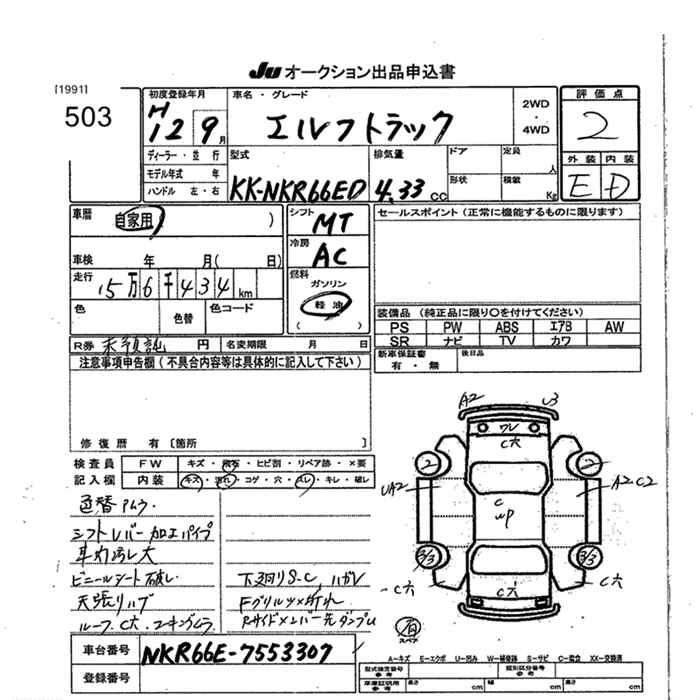 Ju オークション出品申込書
[1991]
503
初度登録年月
H12 9月
車名・グレード
エルフトラック
2WD
・
4WD
評価点
2
ディーラー・並行
モデル年式 年
ハンドル 左・右
型式
KK-NKR66ED
排気量
4.33 cc
ドア
定員 人
形状
積載 Kg
外装 内装
E D
車歴
自家用 )
シフト
MT
冷房
AC
セールスポイント (正常に機能するものに限ります)
車検 年 月( 日)
走行
15万6千434km
燃料
ガソリン
軽油
( )
色 色替 色コード
装備品 (純正品に限り○を付けてください)
PS PW ABS エアB AW
SR ナビ TV カワ
R券 未預託 円 名変期限 月 日
新車保証書
有・無
後日品
注意事項申告欄 (不具合内容等は具体的に記入して下さい)
修復歴 有〔箇所 〕
検査員
記入欄
FW キズ・飛石・ヒビ割・リペア跡・×要
内装 キズ・汚れ・コゲ・穴・スレ・キレ・破レ
色替 Aムラ
シフトレバー加工パイプ
車内汚レ大
ビニールシート破レ
天張リハゲ
ルーフ C穴
下廻りS.C ハガレ
Fグリルツメ折れ
Rサイドメンバー先ダンプム
A2 U3
ワレ
C穴
2 2
UA2 A2 C2
C
WP
3/3 3/3
C穴 C穴 C穴
有
スペア
車台番号 NKR66E-7553307
登録番号
A-キズ E-エクボ U-凹み W-補修跡 S-サビ C-腐立 XX-交換済
型式指定番号
参考
類別区分番号
参考
車庫証明用
参考
長さ cm 幅 cm 高さ cm